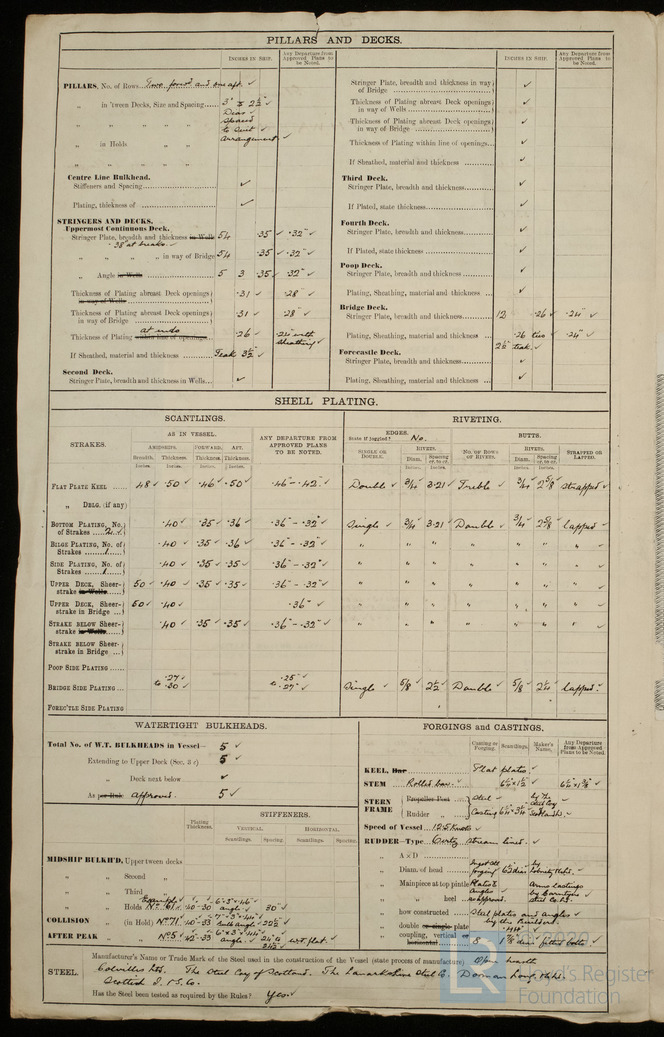 PILLARS AND DECKS.
INCHES IN SHIP.
Any Departure from Approved Plans to be Noted.
PILLARS, No. of Rows Two forw'd and one aft ✓
„ in 'tween Decks, Size and Spacing 3" & 2½" ✓
Diar.
spaced
to suit ✓
arrangement ✓
„ in Holds
Centre Line Bulkhead.
Stiffeners and Spacing ✓
Plating, thickness of ✓
STRINGERS AND DECKS.
Uppermost Continuous Deck.
Stringer Plate, breadth and thickness in Wells 54 .35 ✓ .32" ✓
.38 at breaks. ✓
„ „ „ „ in way of Bridge 54 .35 ✓ .32" ✓
„ Angle in Wells 5 3 .35 ✓ .32" ✓
Thickness of Plating abreast Deck openings in way of Wells .31 ✓ .28" ✓
Thickness of Plating abreast Deck openings in way of Bridge .31 ✓ .28" ✓
Thickness of Plating at ends within line of openings .26 ✓ .24" with sheathing ✓
If Sheathed, material and thickness Teak 2½ ✓
Second Deck.
Stringer Plate, breadth and thickness in Wells ✓
INCHES IN SHIP.
Any Departure from Approved Plans to be Noted.
Stringer Plate, breadth and thickness in way of Bridge ✓
Thickness of Plating abreast Deck openings in way of Wells ✓
Thickness of Plating abreast Deck openings in way of Bridge ✓
Thickness of Plating within line of openings ✓
If Sheathed, material and thickness ✓
Third Deck.
Stringer Plate, breadth and thickness ✓
If Plated, state thickness ✓
Fourth Deck.
Stringer Plate, breadth and thickness ✓
If Plated, state thickness ✓
Poop Deck.
Stringer Plate, breadth and thickness ✓
Plating, Sheathing, material and thickness ✓
Bridge Deck.
Stringer Plate, breadth and thickness 12 .26 ✓ .24" ✓
Plating, Sheathing, material and thickness .26 ties ✓ .24" ✓
2½ teak. ✓
Forecastle Deck.
Stringer Plate, breadth and thickness ✓
Plating, Sheathing, material and thickness ✓
SHELL PLATING.
SCANTLINGS.
RIVETING.
STRAKES.
AS IN VESSEL.
AMIDSHIPS. FORWARD. AFT.
Breadth. Thickness. Thickness. Thickness.
Inches. Inches. Inches. Inches.
ANY DEPARTURE FROM APPROVED PLANS TO BE NOTED.
EDGES.
State if joggled? No.
BUTTS.
SINGLE OR DOUBLE.
RIVETS.
Diam. Spacing cr. to cr.
NO. OF ROWS OF RIVETS.
RIVETS.
Diam. Spacing cr. to cr.
STRAPPED OR LAPPED.
FLAT PLATE KEEL 48 ✓ .50 ✓ .46 ✓ .50 ✓ .46 - .42" ✓ Double ✓ 3/4 ✓ 3.21 ✓ Treble ✓ 3/4 ✓ 2 5/8 ✓ strapped ✓
„ DBLG. (if any)
BOTTOM PLATING, No. of Strakes 2 ✓ .40 ✓ .35 ✓ .36 ✓ .36" - .32" ✓ Single ✓ 3/4 ✓ 3.21 ✓ Double ✓ 3/4 ✓ 2 5/8 ✓ lapped ✓
BILGE PLATING, No. of Strakes 1 .40 ✓ .35 ✓ .36 ✓ .36" - .32" ✓ „ „ „ „ „ „ „
SIDE PLATING, No. of Strakes 1 .40 ✓ .35 ✓ .35 ✓ .36" - .32" ✓ „ „ „ „ „ „ „
UPPER DECK, Sheer-strake in Wells 50 ✓ .40 ✓ .35 ✓ .35 ✓ .36" - .32" ✓ „ „ „ „ „ „ „
UPPER DECK, Sheer-strake in Bridge 50 ✓ .40 ✓ .36" ✓ „ „ „ „ „ „ „
STRAKE BELOW Sheer-strake in Wells .40 ✓ .35 ✓ .35 ✓ .36" - .32" ✓ „ „ „ „ „ „ „
STRAKE BELOW Sheer-strake in Bridge
POOP SIDE PLATING
BRIDGE SIDE PLATING .27 ✓ to .30 ✓ .25" to .27" ✓ Single ✓ 5/8 ✓ 2½ ✓ Double ✓ 5/8 ✓ 2¼ ✓ lapped ✓
FORE'TLE SIDE PLATING
WATERTIGHT BULKHEADS.
Total No. of W.T. BULKHEADS in Vessel— 5 ✓
Extending to Upper Deck (Sec. 3 c) 5 ✓
„ Deck next below ✓
As per Rule approved. 5 ✓
Plating Thickness.
STIFFENERS.
VERTICAL. HORIZONTAL.
Scantlings. Spacing. Scantlings. Spacing.
MIDSHIP BULKH'D, Upper tween decks
„ „ Second „
„ „ Third „
„ „ Holds
COLLISION „ (in Hold) No. 71
AFTER PEAK „ No. 5
W.T. flat. ✓
FORGINGS and CASTINGS.
Casting or Forging. Scantlings. Maker's Name. Any Departure from Approved Plans to be Noted.
KEEL, Bar Flat plate. ✓
STEM Rolled bar. ✓
STERN FRAME Propeller Post Steel
Rudder „ Casting
Speed of Vessel 12.5 knots ✓
RUDDER—Type Oertz stream lined. ✓
„ A × D
„ Diam. of head
„ Mainpiece at top pintle
„ „ heel approved.
„ how constructed Steel plates and angles ✓
by the builders.
„ double or single plate
„ coupling, vertical or horizontal 8
fitted bolts ✓
STEEL.
Manufacturer's Name or Trade Mark of the Steel used in the construction of the Vessel (state process of manufacture) Open hearth
Colvilles Ltd. The Steel Coy of Scotland. The Lanarkshire Steel Co. Dorman Long & Co.
Scottish I. & S. Co.
Has the Steel been tested as required by the Rules? Yes. ✓
© 2020
Lloyd's Register
Foundation